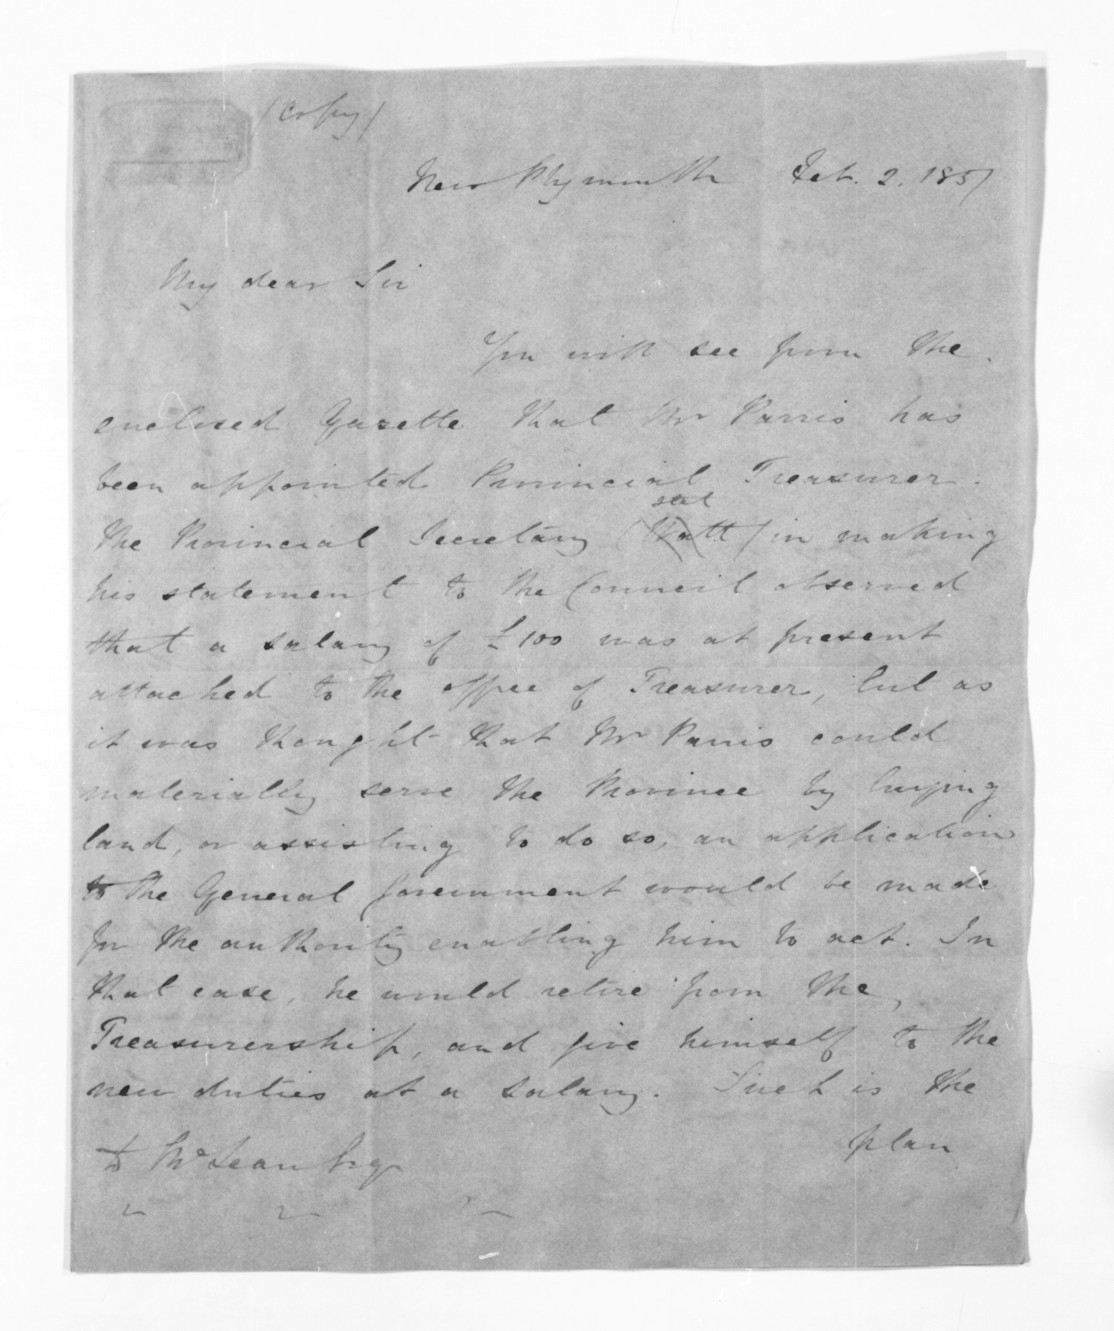 (Copy)
New Plymouth Feb. 2. 1857
My dear Sir
You will see from the
enclosed Gazette that Mr Parris has
been appointed Provincial Treasurer.
The Provincial Secretary (Watt) in making
his statement to the Council observed
that a salary of £100 was at present
attached to the office of Treasurer, but as
it was thought that Mr Parris could
materially serve the Province by buying
land, or assisting to do so, an application
to the General Government would be made
for the authority enabling him to act. In
that case, he would retire from the
Treasurership, and give himself to the
new duties at a salary. Such is the
plan
D McLean Esq